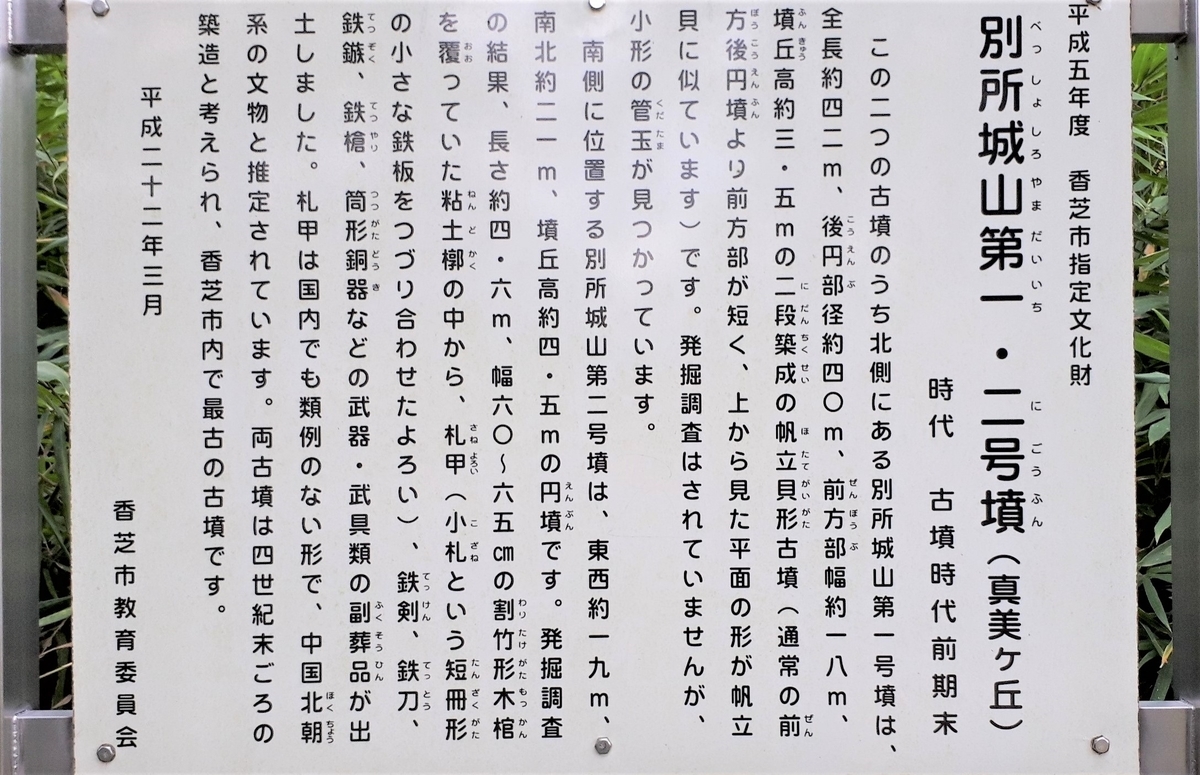 平成五年度　香芝市指定文化財
別所城山第一・二号墳（真美ケ丘）
時代　古墳時代前期末
この二つの古墳のうち北側にある別所城山第一号墳は、
全長約四二ｍ、後円部径約四〇ｍ、前方部幅約一八ｍ、
墳丘高約三・五ｍの二段築成の帆立貝形古墳（通常の前
方後円墳より前方部が短く、上から見た平面の形が帆立
貝に似ています）です。発掘調査はされていませんが、
小形の管玉が見つかっています。
南側に位置する別所城山第二号墳は、東西約一九ｍ、
南北約二一ｍ、墳丘高約四・五ｍの円墳です。発掘調査
の結果、長さ約四・六ｍ、幅六〇～六五㎝の割竹形木棺
を覆っていた粘土槨の中から、札甲（小札という短冊形
の小さな鉄板をつづり合わせたよろい）、鉄剣、鉄刀、
鉄鏃、鉄槍、筒形銅器などの武器・武具類の副葬品が出
土しました。札甲は国内でも類例のない形で、中国北朝
系の文物と推定されています。両古墳は四世紀末ごろの
築造と考えられ、香芝市内で最古の古墳です。
平成二十二年三月
香芝市教育委員会